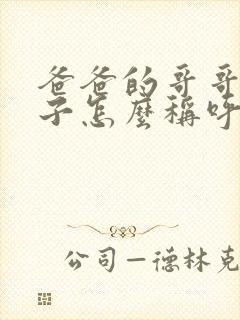 爸爸的哥哥
子怎麼稱呼
公司－德林克